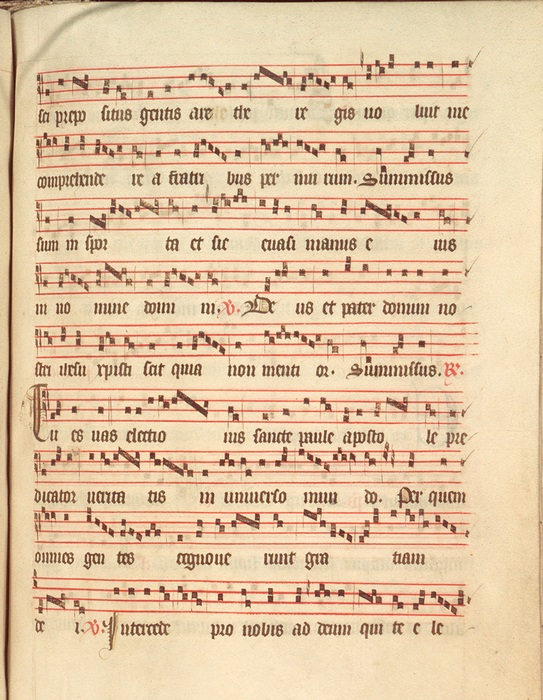 sci prepo situs gentis are the re gis uo luit me
comprehende re a fratri bus per mu rum. Summissus
sum in spor ta et sic euasi manus e ius
in no mine dom ni. V. De us et pater domini no
stri iesu xpisti scit quia non menti or. Summissus. R.
Tu es uas electio nis sancte paule aposto le pre
dicator uerita tis in uniuerso mun do. Per quem
omnes gen tes cognoue runt gra tiam
de i. V. Intercede pro nobis ad deum qui te e le